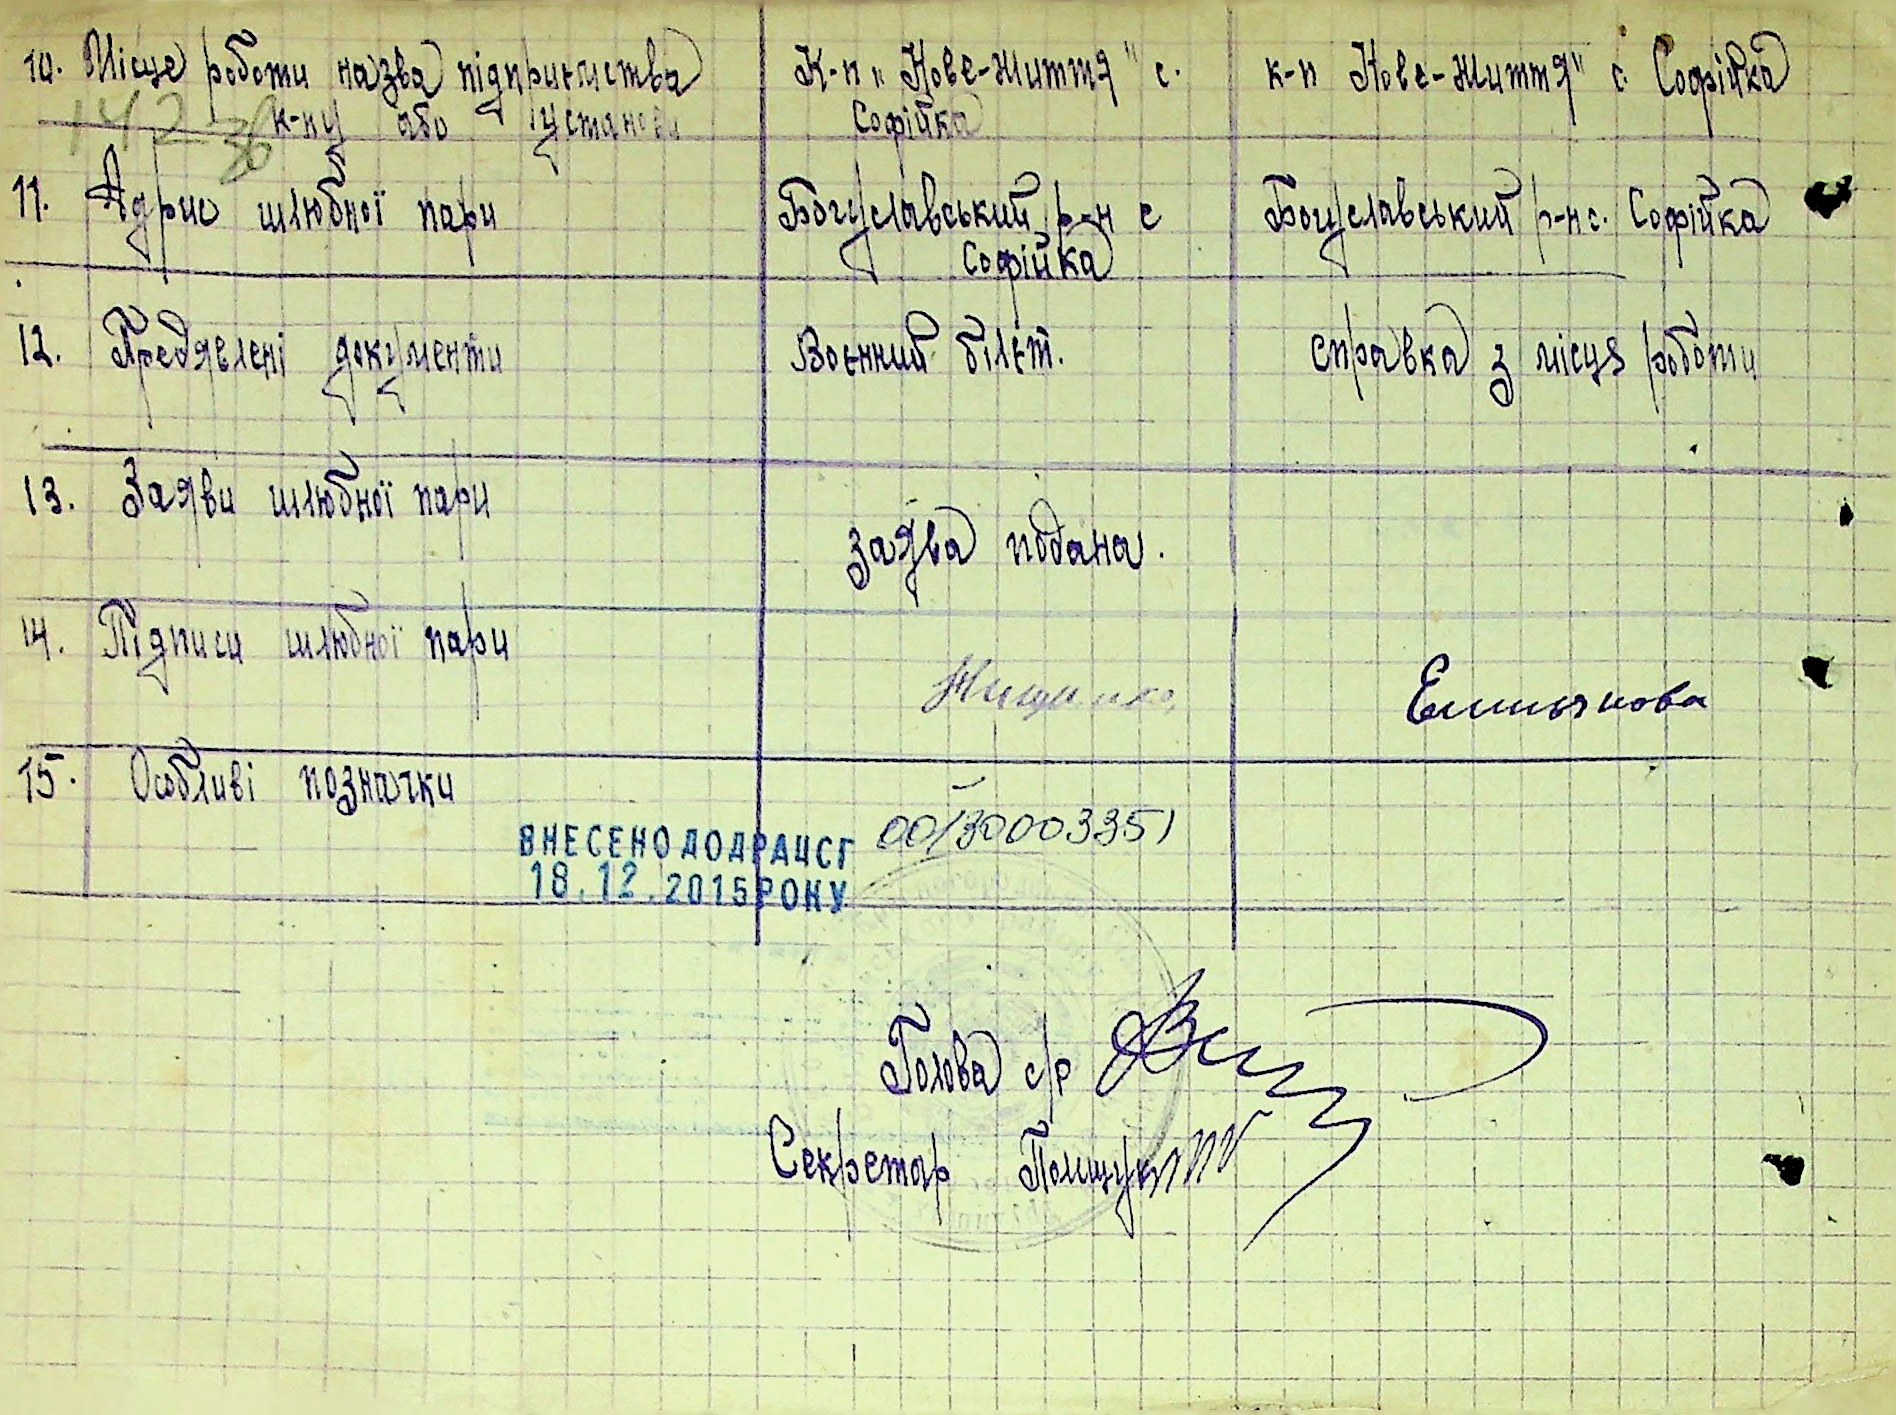 10. Місце роботи назва підприємства К-п „Нове-життя" с. к-п Нове-життя" с. Софійка
к-пу або установи Софійка
142
11. Адрис шлюбної пари Богуславський р-н с Богуславський р-н с. Софійка
Софійка
12. Предявлені документи Воєнний білєт. справка з місця роботи
13. Заяви шлюбної пари
заява подана.
14. Підписи шлюбної пари Нищенко Емельянова
15. Особливі позначки
ВНЕСЕНО ДО ДРАЦСГ 00130003351
18.12.2015 РОКУ
Голова с/р
Секретар Поліщук